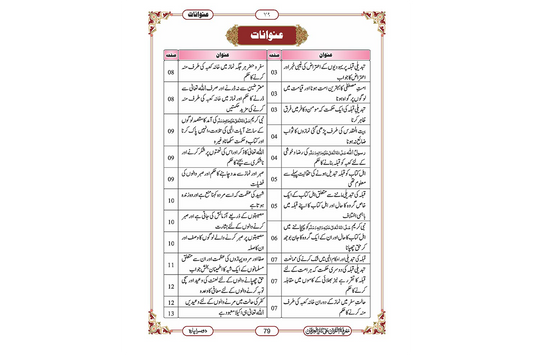 عنوانات
٧٩
عنوانات
عنوان
صفحہ
تبدیلیِ قبلہ پر یہودیوں کے اعتراض کی غیبی خبر اور
اعتراض کا جواب
03
امتِ مصطفیٰ کا بہترین امت ہونا اور قیامت میں
لوگوں پر گواہ ہونا
03
تبدیلیِ قبلہ کی ایک حکمت کہ مومن و کافر میں فرق
ظاہر کرنا
03
بیت المقدس کی طرف پڑھی گئی نمازوں کا ثواب
ضائع نہ ہونا
04
رسول اللہ صلی اللہ علیہ وسلم کی رضا و خوشی
کے لئے کعبہ کو قبلہ بنانے کا حکم
04
اہل کتاب کو قبلہ تبدیل ہونے کی حقانیت پہلے سے
معلوم تھی
05
قبلہ کی تبدیلی ماننے سے متعلق اہل کتاب کے ایک
خاص گروہ کا حال اور اہل کتاب کا اپنے قبلہ میں
باہمی اختلاف
05
نبی کریم صلی اللہ علیہ وسلم کو پہچاننے میں
اہل کتاب کا حال اور ان کے ایک گروہ کا جان بوجھ
کر حق چھپانا
06
قبلہ کی تبدیلی اور احکام الٰہی میں شک کرنے کی ممانعت
07
تبدیلیِ قبلہ کی دوسری حکمت کہ ہر امت کے لئے
قبلہ کا تقرر ہے نیز بھلائی کے کاموں میں مقابلہ
کرنے کا حکم
07
حالتِ سفر میں نماز کے دوران خانہ کعبہ کی طرف
منہ کرنے کا حکم
07
عنوان
صفحہ
سفر و حضر ہر جگہ نماز میں خانہ کعبہ کی طرف منہ
کرنے کا حکم
08
معترضین سے نہ ڈرنے اور صرف اللہ تعالیٰ سے
ڈرنے کا حکم اور نماز میں خانہ کعبہ کی طرف منہ
کرنے کی مزید حکمتیں
08
نبی کریم صلی اللہ علیہ وسلم کی آمد کا مقصد لوگوں
کے سامنے آیاتِ الٰہی کی تلاوت، انہیں پاک کرنا
اور کتاب و حکمت سکھانا وغیرہ
09
اللہ تعالیٰ کا ذکر اور اس کی نعمتوں پر شکر کرنے اور
ناشکری سے بچنے کا حکم
09
صبر اور نماز سے مدد چاہنے کا حکم اور صبر والوں کی
فضیلت
09
شہید کی عظمت کہ اسے مردہ کہنا منع ہے اور وہ زندہ
ہوتا ہے
10
مصیبتوں کے ذریعے آزمائش کی جاتی ہے اور صبر
کرنے والوں کے لئے بشارت
10
مصیبتوں پر صبر کرنے والے لوگوں کا وصف اور
ان کا صلہ
10
صفا اور مروہ پہاڑوں کی عظمت اور ان سے متعلق
مسلمانوں کے ایک شبہ کا اطمینان بخش جواب
11
حق چھپانے والوں کے لئے لعنت کی وعید اور سچی
توبہ کرنے والوں کے لئے معافی کا وعدہ
12
کفر کی حالت میں مرنے والوں کے لئے وعیدیں
12
اللہ تعالیٰ ہی اکیلا معبود ہے
13
دوسرا پارہ
79